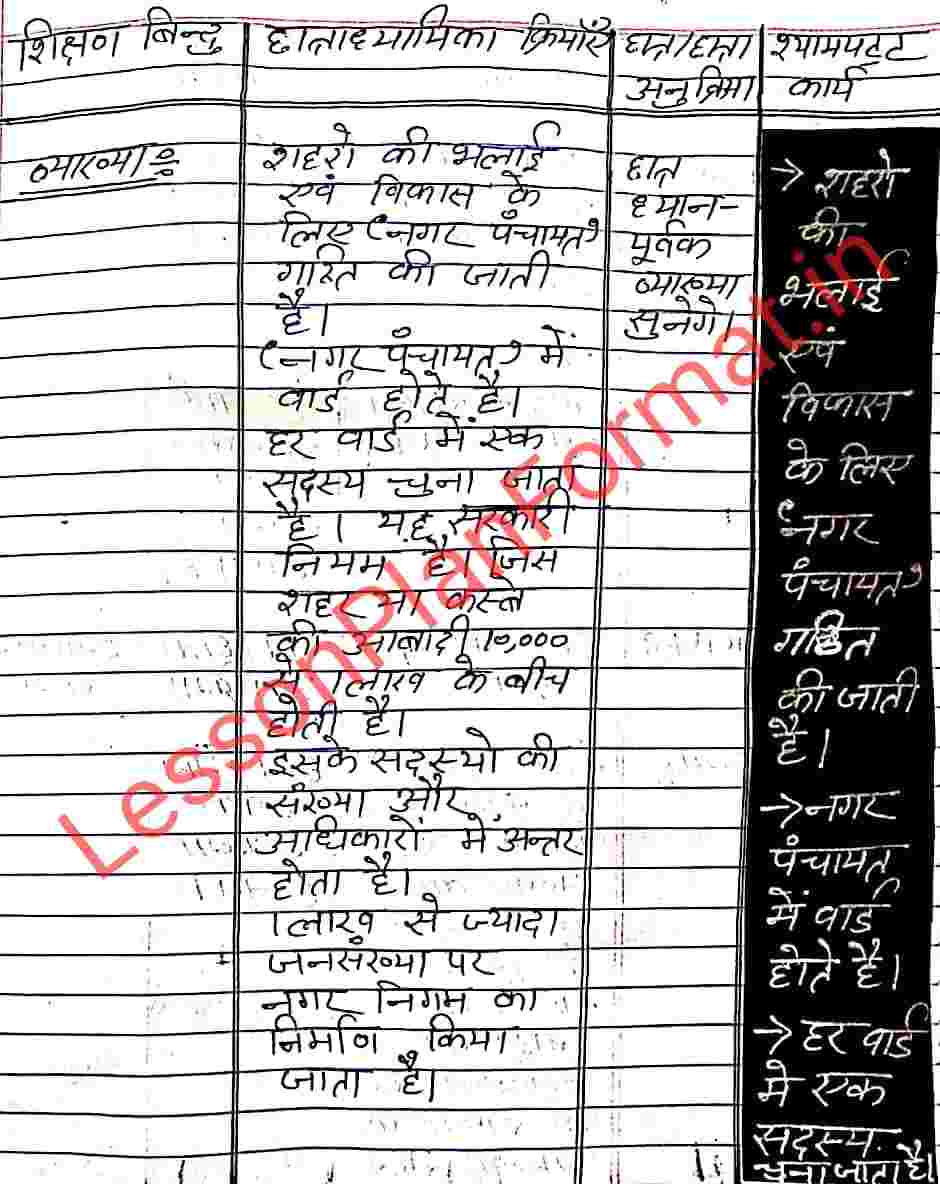 शिक्षण बिन्दु
छात्राध्यापिका क्रियाएँ
छात्र/छात्रा
अनुक्रिया
श्यामपट्ट
कार्य
व्याख्या :-
शहरो की भलाई
एवं विकास के
लिए 'नगर पंचायत'
गठित की जाती
है।
'नगर पंचायत' में
वार्ड होते है।
हर वार्ड में एक
सदस्य चुना जाता
है। यह सरकारी
नियम है। जिस
शहर या कस्बे
की आबादी 10,000
से 1लाख के बीच
होती है।
इसके सदस्यो की
संख्या और
अधिकारों में अन्तर
होता है।
1लाख से ज्यादा
जनसंख्या पर
नगर निगम का
निर्माण किया
जाता है।
छात्र
ध्यान-
पूर्वक
व्याख्या
सुनेगे।
→ शहरो
की
भलाई
एवं
विकास
के लिए
'नगर
पंचायत'
गठित
की जाती
है।
→ नगर
पंचायत
में वार्ड
होते है।
→ हर वार्ड
मे एक
सदस्य
चुना जाता है।
LessonPlanFormat.in